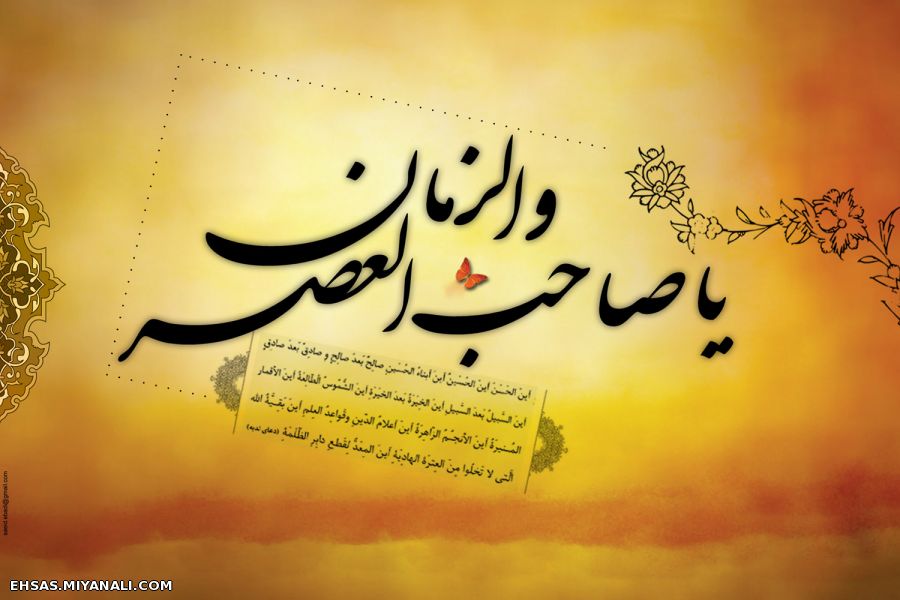 یا صاحب العصر
والزمان
اینَ الحَسَنُ اینَ الحُسَیْنُ اینَ اَبناءُ الحُسَیَنِ صالِحٌ بَعدَ صالِحٍ و صادِقٌ بَعدَ صادِقٍ
اینَ السَّبیلُ بَعدَ السَّبیلِ اینَ الخِیَرَةُ بَعدَ الخِیَرَةِ اینَ الشُّمُوسُ الطّالِعَةُ اینَ الأقمارُ
المُنیرَةُ اینَ الأنجُمُ الزّاهِرَةُ اینَ اَعلامُ الدّینِ وقَواعِدُ العِلمِ اینَ بَقِیَّةُ الله
الَّتی لا تَخلُوا مِنَ العِترَةِ الهادِیَةِ اینَ المعَدُّ لِقَطعِ دابِرِ الظَّلَمَةِ (دعای ندبه)
EHSAS.MIYANALI.COM